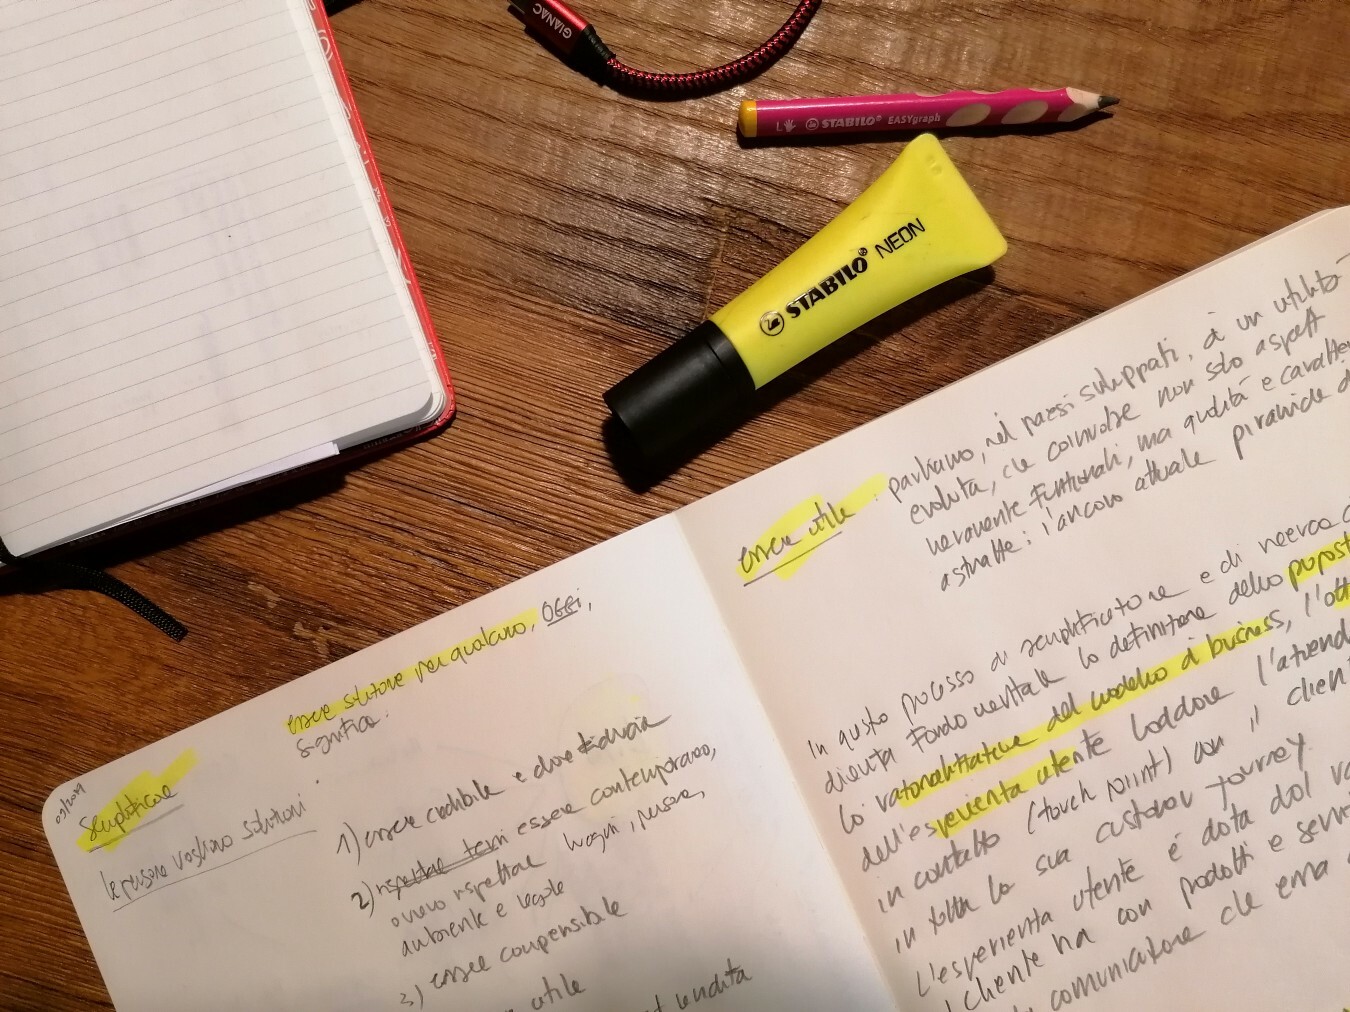 GIANAC
L STABILO® EASYgraph
STABILO® NEON
Semplificare
le persone vogliono soluzioni
essere soluzione per qualcuno, OGGI,
significa:
1) essere credibile e dare fiducia
2) rispettare temi essere contemporaneo,
ovvero rispettare luoghi, persone,
ambiente e legale
3) essere comprensibile
utile
vendita
essere utile: parliamo, nei paesi sviluppati, di un utilità
evoluta, che coinvolge non solo aspetti
veramente funzionali, ma qualità e caratteri
astratte: l'ancora attuale piramide d
In questo processo di semplificazione e di ricerca
diventa fondamentale la definizione della propost
la razionalizzazione del modello di business, l'ott
dell'esperienza utente laddove l'aziend
in contatto (touch point) con il client
in tutta la sua customer journey.
L'esperienza utente è data dal va
cliente ha con prodotti e servi
comunicazione che erra